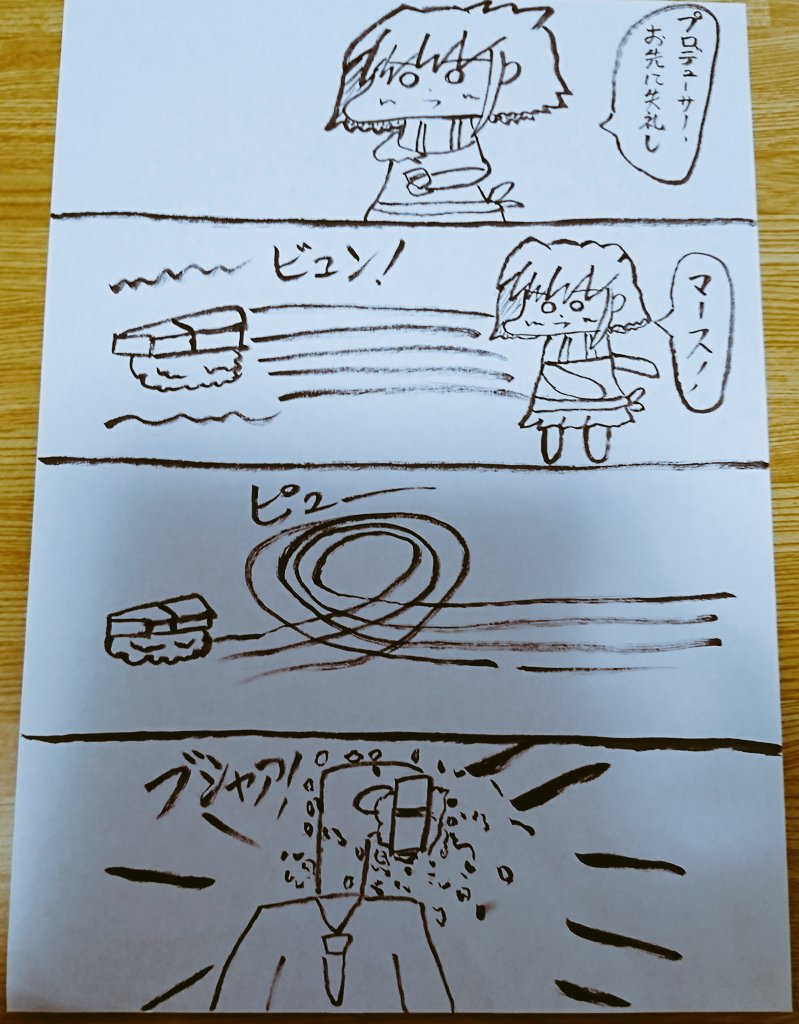 プロデューサー、
お先に失礼し
マース！
ビュン！
ピュー
ブシャア！